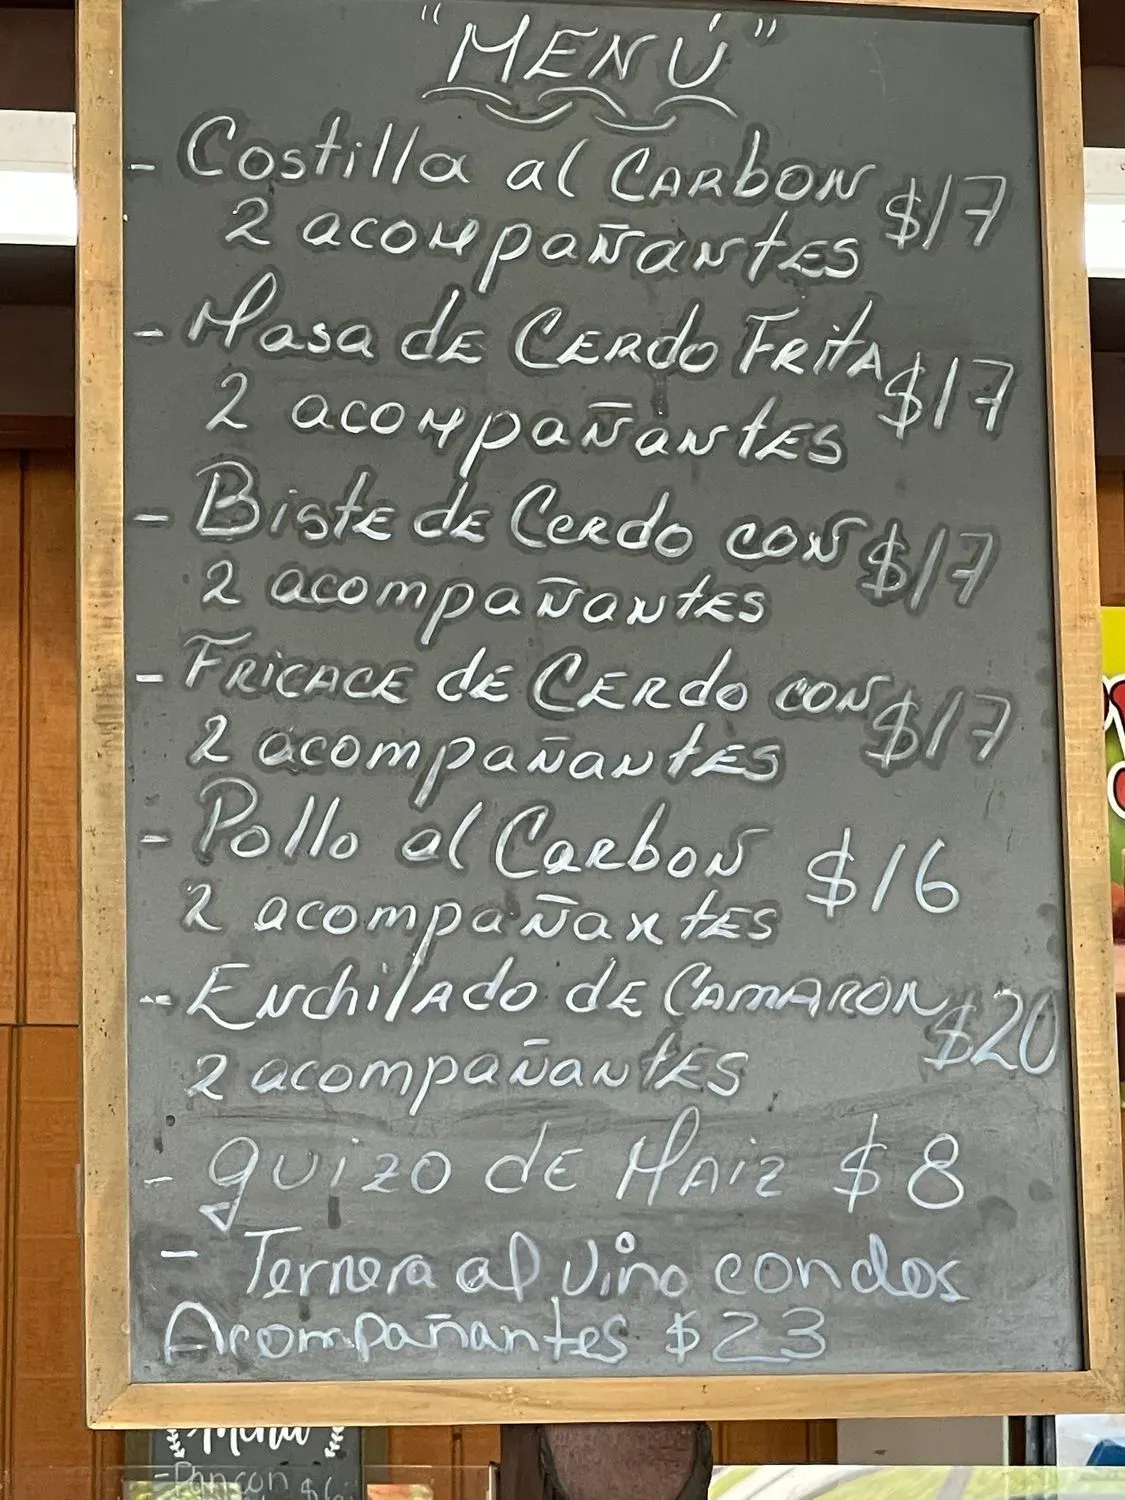 "MENÚ"
- Costilla al CARBON $17
2 acompañantes
- Masa de CERdo FRitA $17
2 acompañantes
- Biste de Cerdo con $17
2 acompañantes
- FRICACE de CERdo con $17
2 acompañantes
- Pollo al Carbon $16
2 acompañantes
- Enchilado de CAMARON $20
2 acompañantes
- guizo de Maiz $8
- Ternera al vino con dos
Acompañantes $23
Menu
- Pan con $6